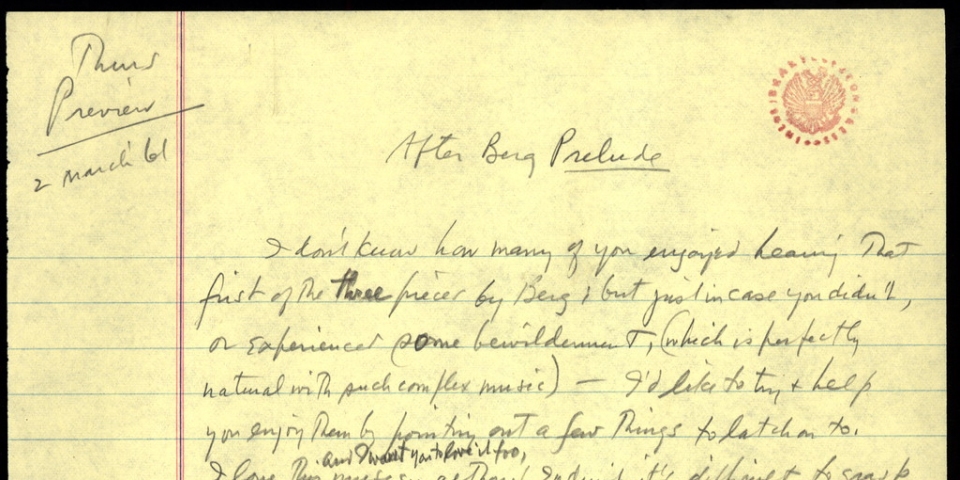 Thurs
Preview
2 March '61
After Berg Prelude
I don't know how many of you enjoyed hearing that
first of the three pieces by Berg; but just in case you didn't,
or experienced some bewilderment, (which is perfectly
natural with such complex music) — I'd like to try & help
you enjoy them by pointing out a few things to latch on to.
and I want you to love it too,
I love this music, it's difficult to grasp